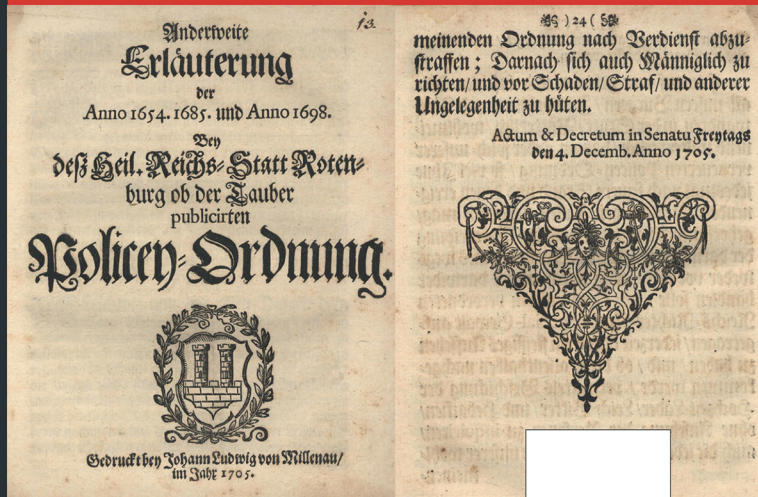 13.
Anderweite
Erläuterung
der
Anno 1654. 1685. und Anno 1698.
Bey
deß Heil. Reichs-Statt Roten-
burg ob der Tauber
publicirten
Policey-Ordnung.
Gedruckt bey Johann Ludwig von Millenau/
im Jahr 1705.
) 24 (
meinenden Ordnung nach Verdienst abzu-
straffen; Darnach sich auch Männiglich zu
richten/ und vor Schaden/ Straf/ und anderer
Ungelegenheit zu hüten.
Actum & Decretum in Senatu Freytags
den 4. Decemb. Anno 1705.